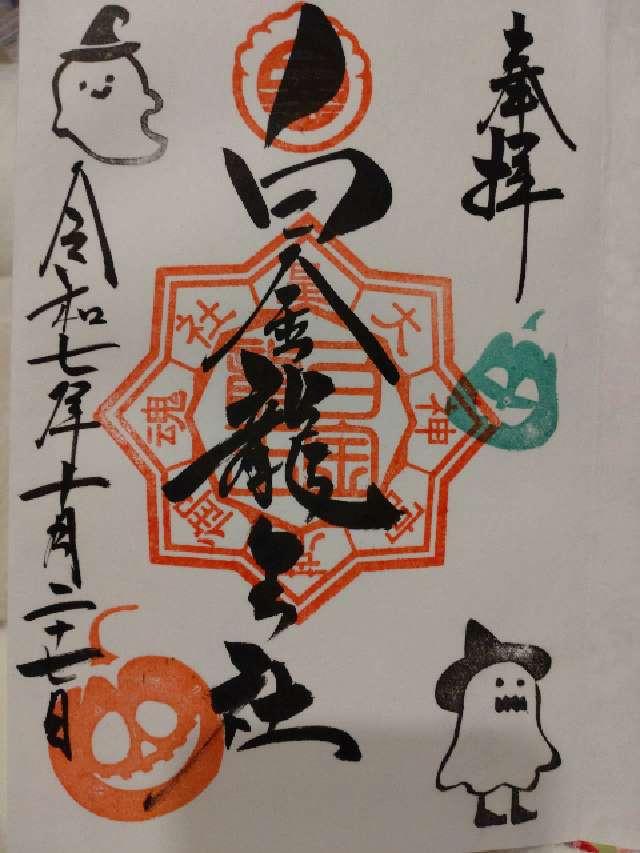 奉拝
白金龍 社
令和七年十月二十七日
大神宮
御魂社